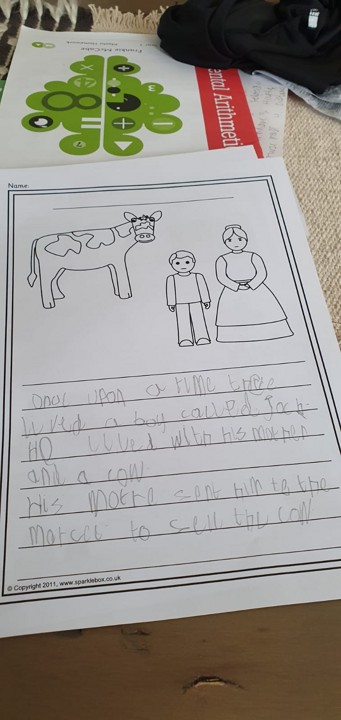 Mental Arithmetic
Name:
onec upon a time there
lived a boy called Jack.
HO lived with his mother
and a cow.
His mothe sent him to the
marcet to sell the cow.
© Copyright 2011, www.sparklebox.co.uk